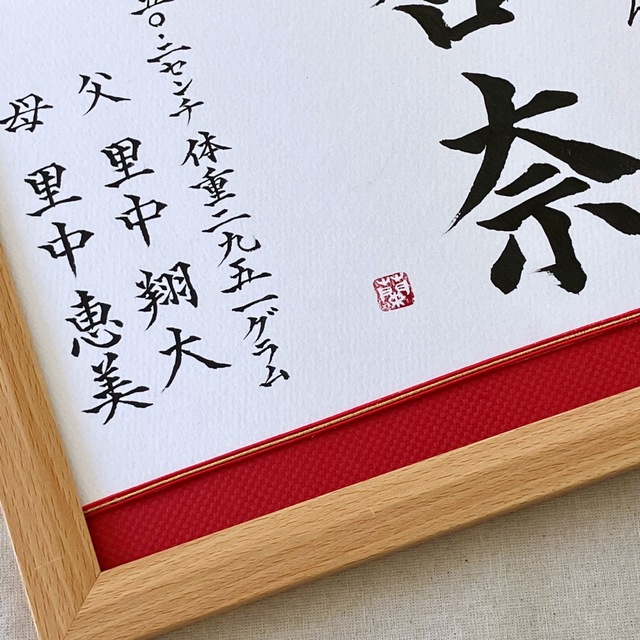 奈
五〇・二センチ 体重二九五一グラム
父 里中 翔大
母 里中 恵美